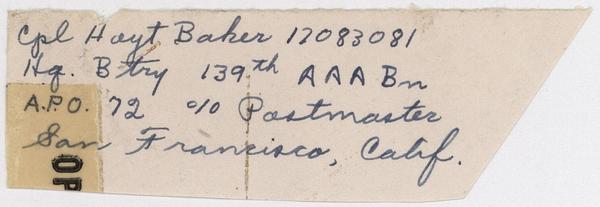 Cpl Hoyt Baker 17083081
Hq. Btry 139th AAA Bn
A.P.O. 72 c/o Postmaster
San Francisco, Calif.
OP